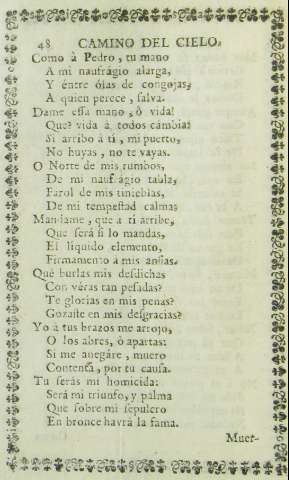 48 CAMINO DEL CIELO.
Como à Pedro, tu mano
A mi naufrágio alarga,
Y éntre ólas de congojas,
A quien perece, salva.
Dame essa mano, ò vida!
Que? vida à todos cámbia?
Si arribo à ti, mi puerto,
No huyas, no te vayas.
O Norte de mis rumbos,
De mi naufrágio tabla,
Farol de mis tinieblas,
De mi tempestad calma;
Mandame, que à ti arribe,
Que será si lo mandas,
El liquido elemento,
Firmamento à mis ansias.
Qué burlas mis desdichas
Con véras tan pesadas?
Te glorias en mis penas?
Gozaste en mis desgracias?
Yo à tus brazos me arrojo,
O los abres, ò apartas:
Si me anegáre, muero
Contenta, por tu causa.
Tu serás mi homicida:
Será mi triunfo, y palma
Que sobre mi sepulcro
En bronce havrà la fama.
Muer-